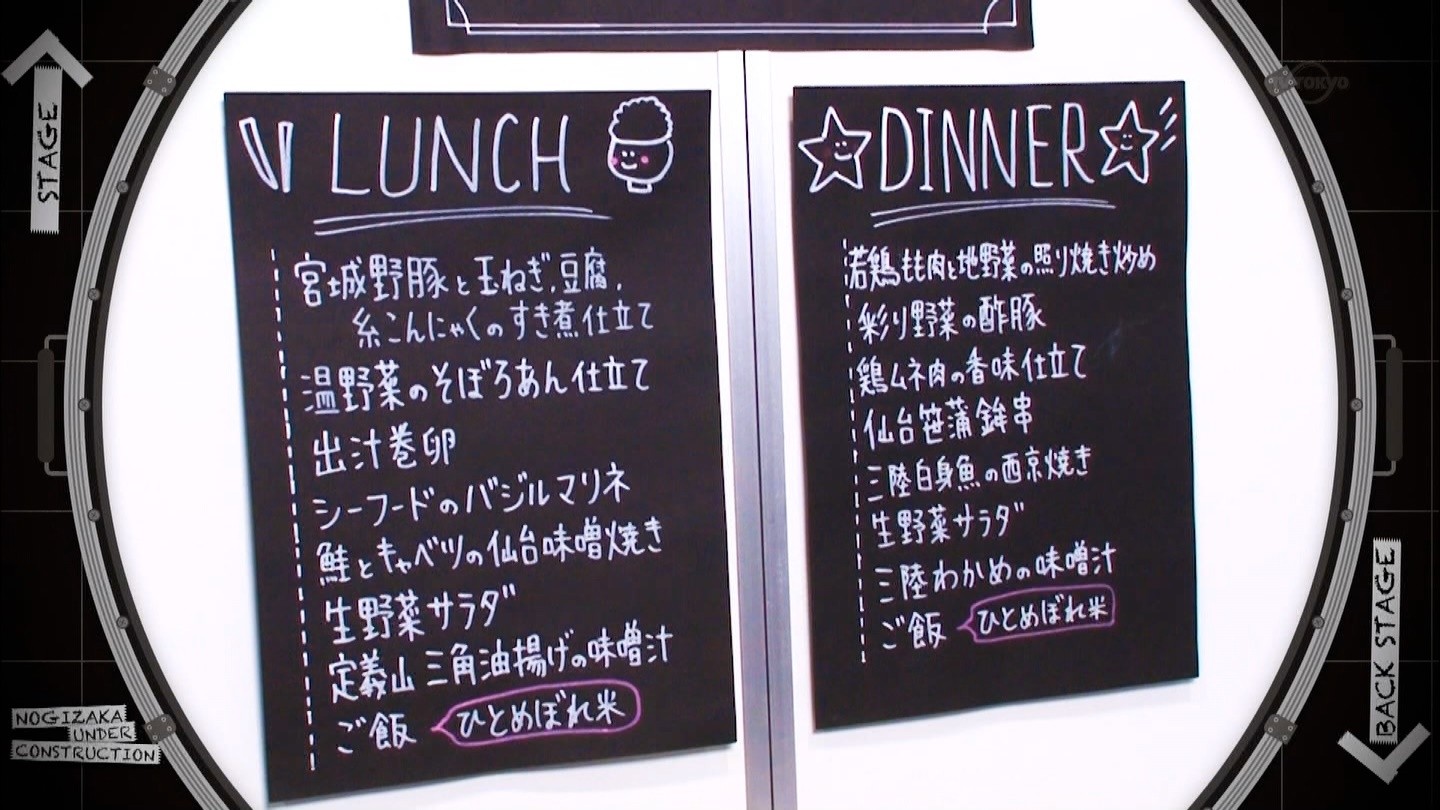 STAGE
LUNCH
宮城野豚と玉ねぎ、豆腐、
糸こんにゃくのすき煮仕立て
温野菜のそぼろあん仕立て
出汁巻卵
シーフードのバジルマリネ
鮭とキャベツの仙台味噌焼き
生野菜サラダ
定義山 三角油揚げの味噌汁
ご飯 ひとめぼれ米
DINNER
若鶏もも肉と地野菜の照り焼き炒め
彩り野菜の酢豚
鶏ムネ肉の香味仕立て
仙台笹蒲鉾串
三陸白身魚の西京焼き
生野菜サラダ
三陸わかめの味噌汁
ご飯 ひとめぼれ米
NOGIZAKA
UNDER
CONSTRUCTION
BACK STAGE